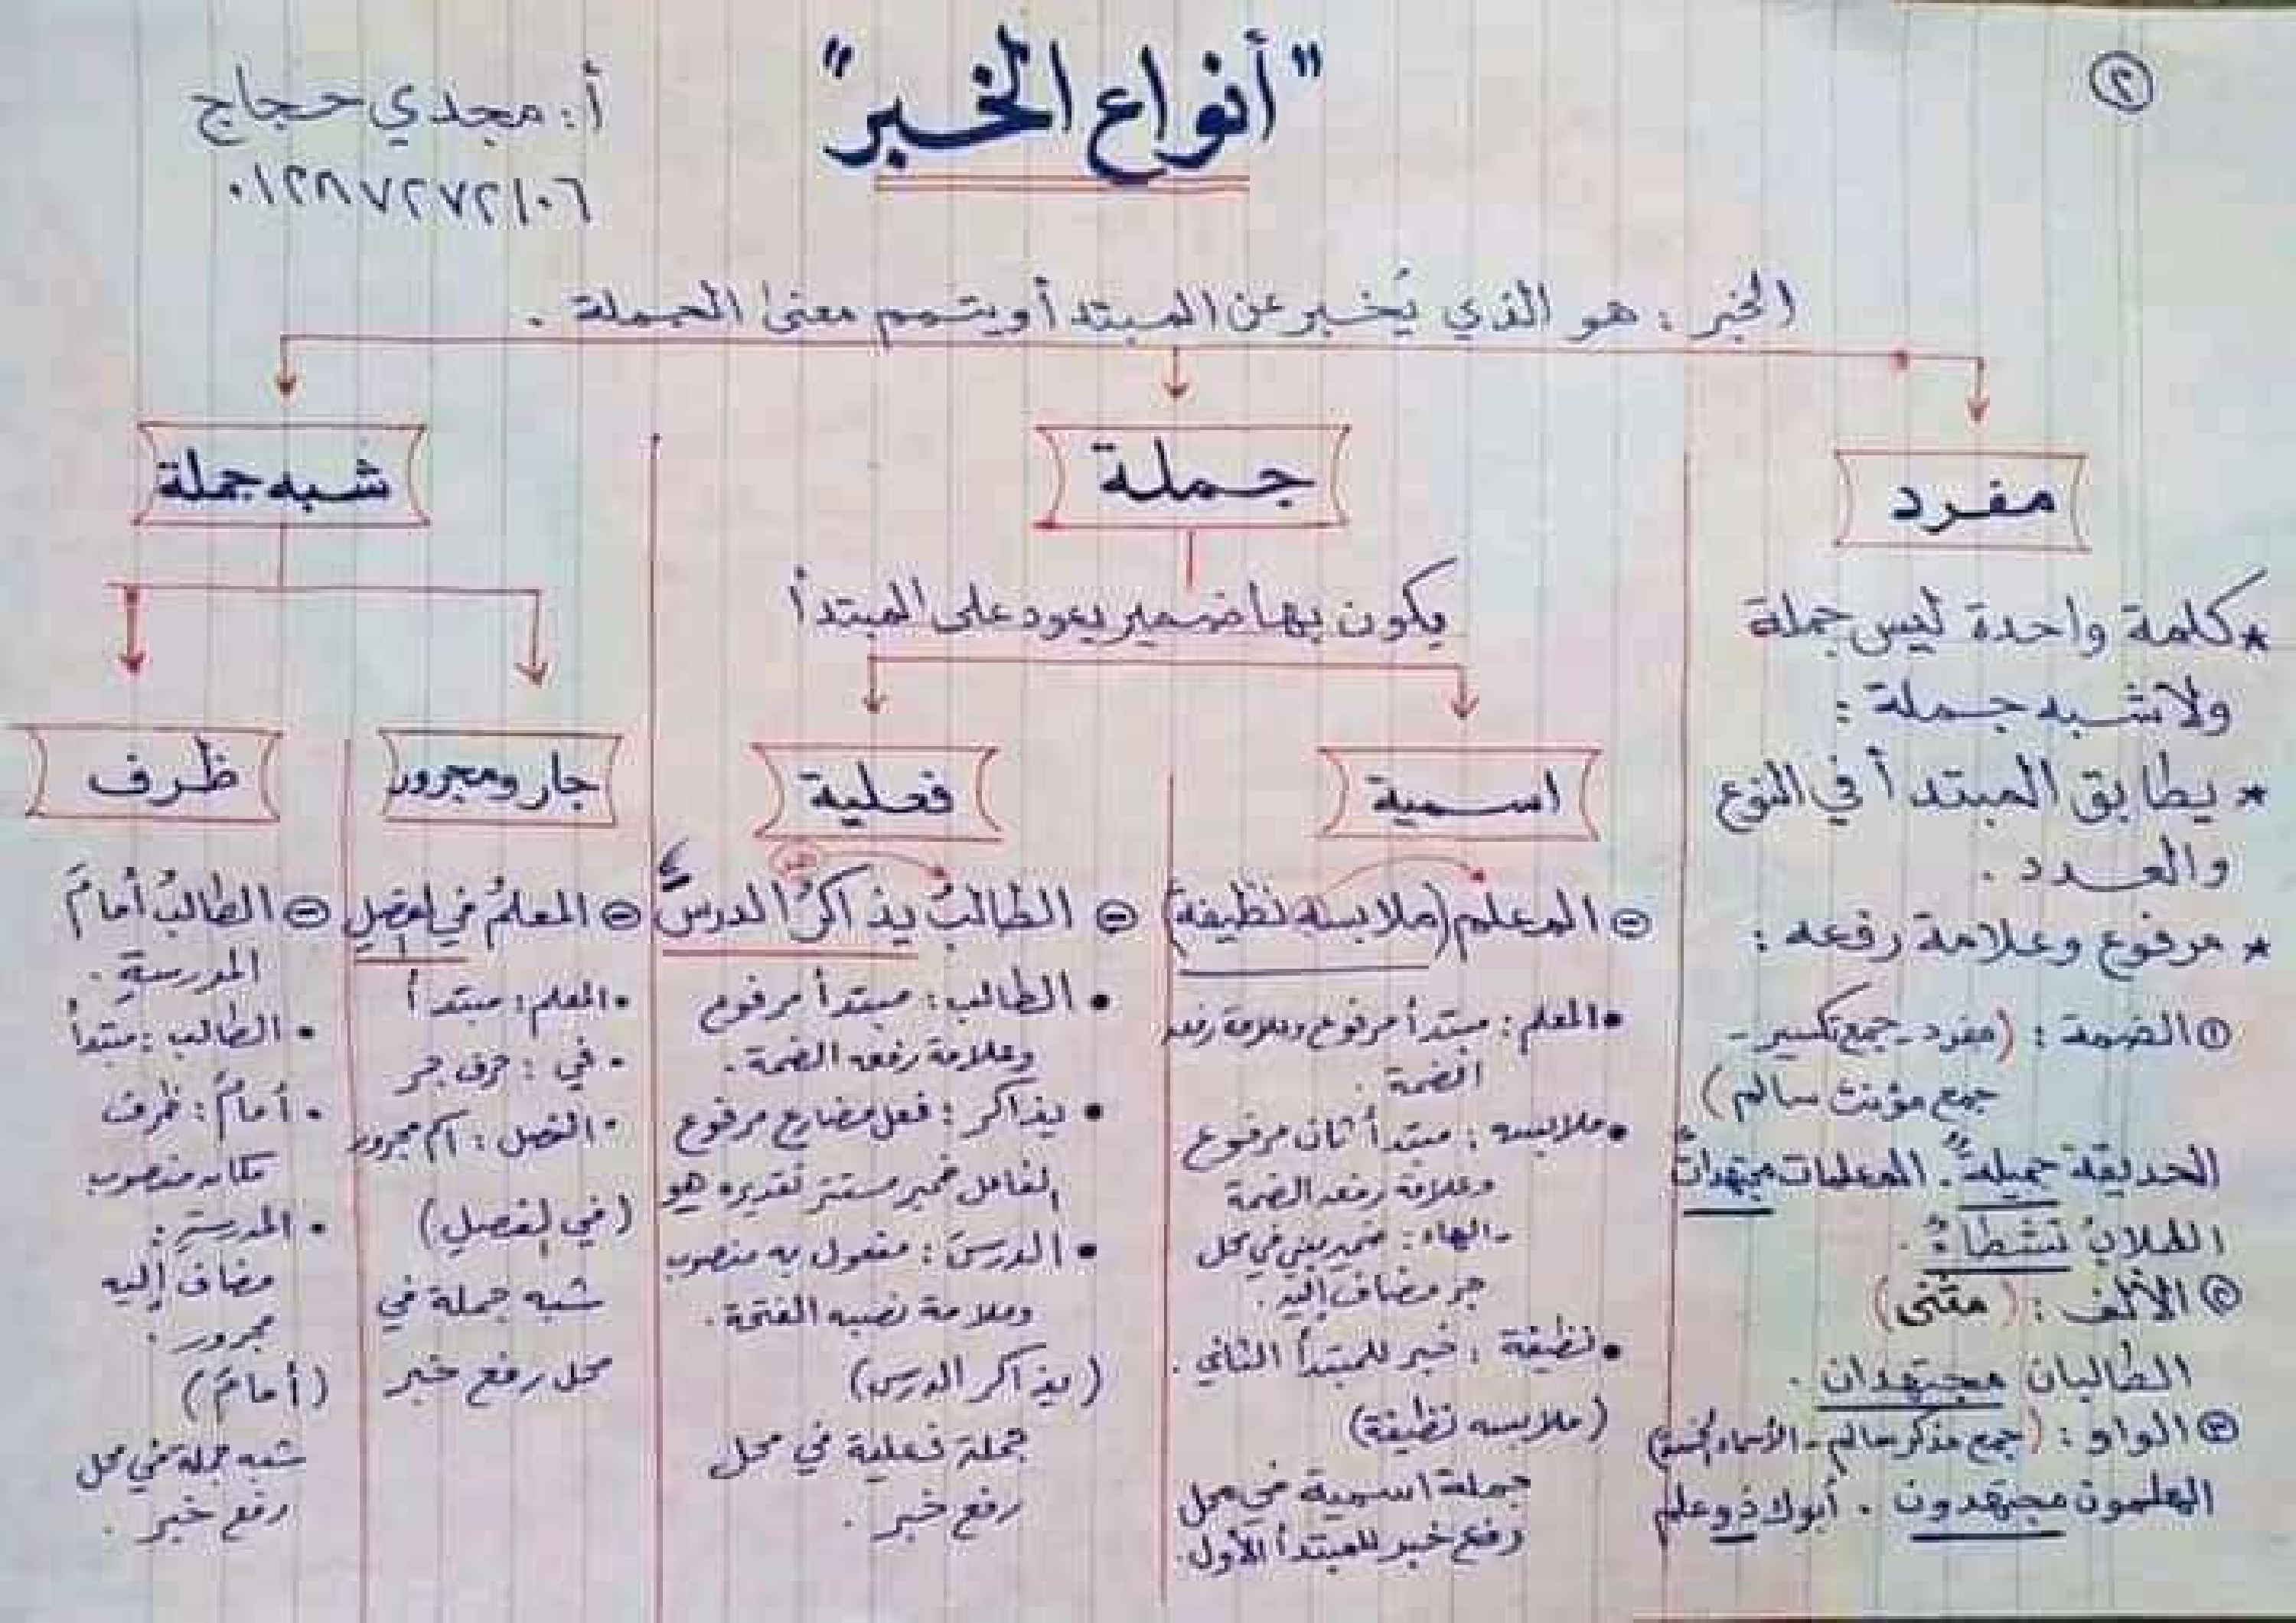 ٢
"أنواع الخبر"
أ: مجدي حجاج
٠١٢٨٧٢٧٢١٠٦
الخبر : هو الذي يُخبر عن المبتدأ ويتمم معنى الجملة .
مفرد
★ كلمة واحدة ليس جملة
ولا شبه جملة :
★ يطابق المبتدأ في النوع
والعدد .
★ مرفوع وعلامة رفعه :
١ الضمة : (مفرد - جمع تكسير -
جمع مؤنث سالم)
الحديقة جميلةٌ . المعلمات مجتهداتٌ
الطلابُ نشطاءُ .
٢ الألف : (مثنى)
الطالبان مجتهدان .
٣ الواو : (جمع مذكر سالم - الأسماء الخمسة)
المعلمون مجتهدون . أبوك ذو علم
جملة
يكون بها ضمير يعود على المبتدأ
اسمية
- المعلم (ملابسه نظيفة)
• المعلم : مبتدأ مرفوع وعلامة رفعه
الضمة .
• ملابسه : مبتدأ ثان مرفوع
وعلامة رفعه الضمة
- الهاء : ضمير مبني في محل
جر مضاف إليه .
• نظيفة : خبر للمبتدأ الثاني .
(ملابسه نظيفة)
جملة اسمية في محل
رفع خبر للمبتدأ الأول .
فعلية
- الطالبُ يذاكرُ الدرسَ
• الطالب : مبتدأ مرفوع
وعلامة رفعه الضمة .
• يذاكر : فعل مضارع مرفوع
الفاعل ضمير مستتر تقديره هو
• الدرسَ : مفعول به منصوب
وعلامة نصبه الفتحة .
(يذاكر الدرس)
جملة فعلية في محل
رفع خبر .
شبه جملة
جار ومجرور
- المعلمُ في الفصلِ
• المعلم : مبتدأ
• في : حرف جر
• الفصل : اسم مجرور
(في الفصلِ)
شبه جملة في
محل رفع خبر
ظرف
- الطالبُ أمامَ
المدرسةِ .
• الطالب : مبتدأ
• أمامَ : ظرف
مكان منصوب
• المدرسةِ :
مضاف إليه
مجرور .
(أمامَ)
شبه جملة في محل
رفع خبر .